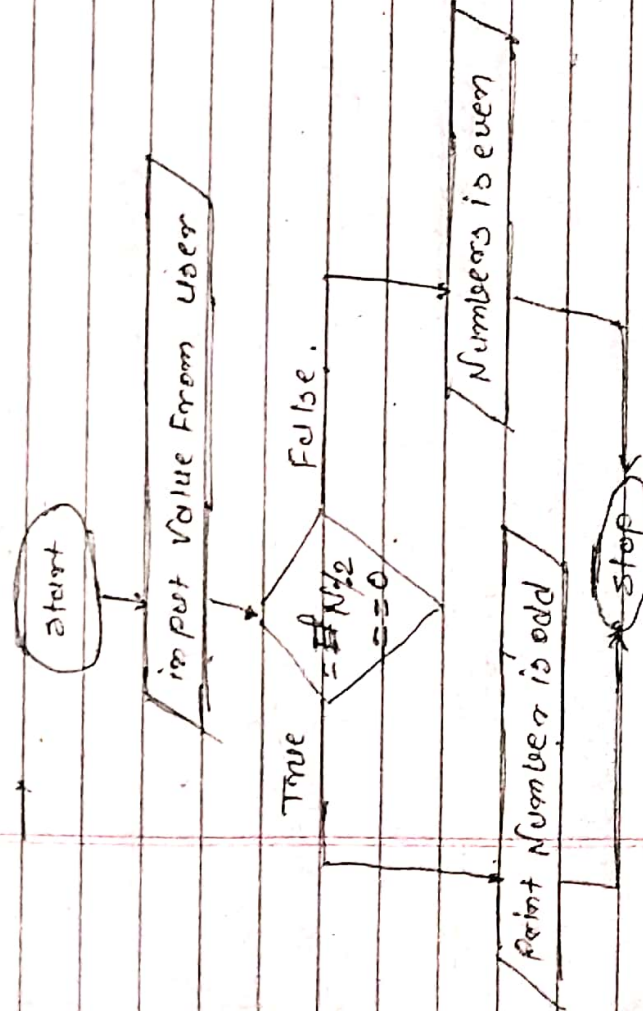 Start
input value From user
True
False.
N%2
==0
Print Number is odd
Numbers is even
Stop